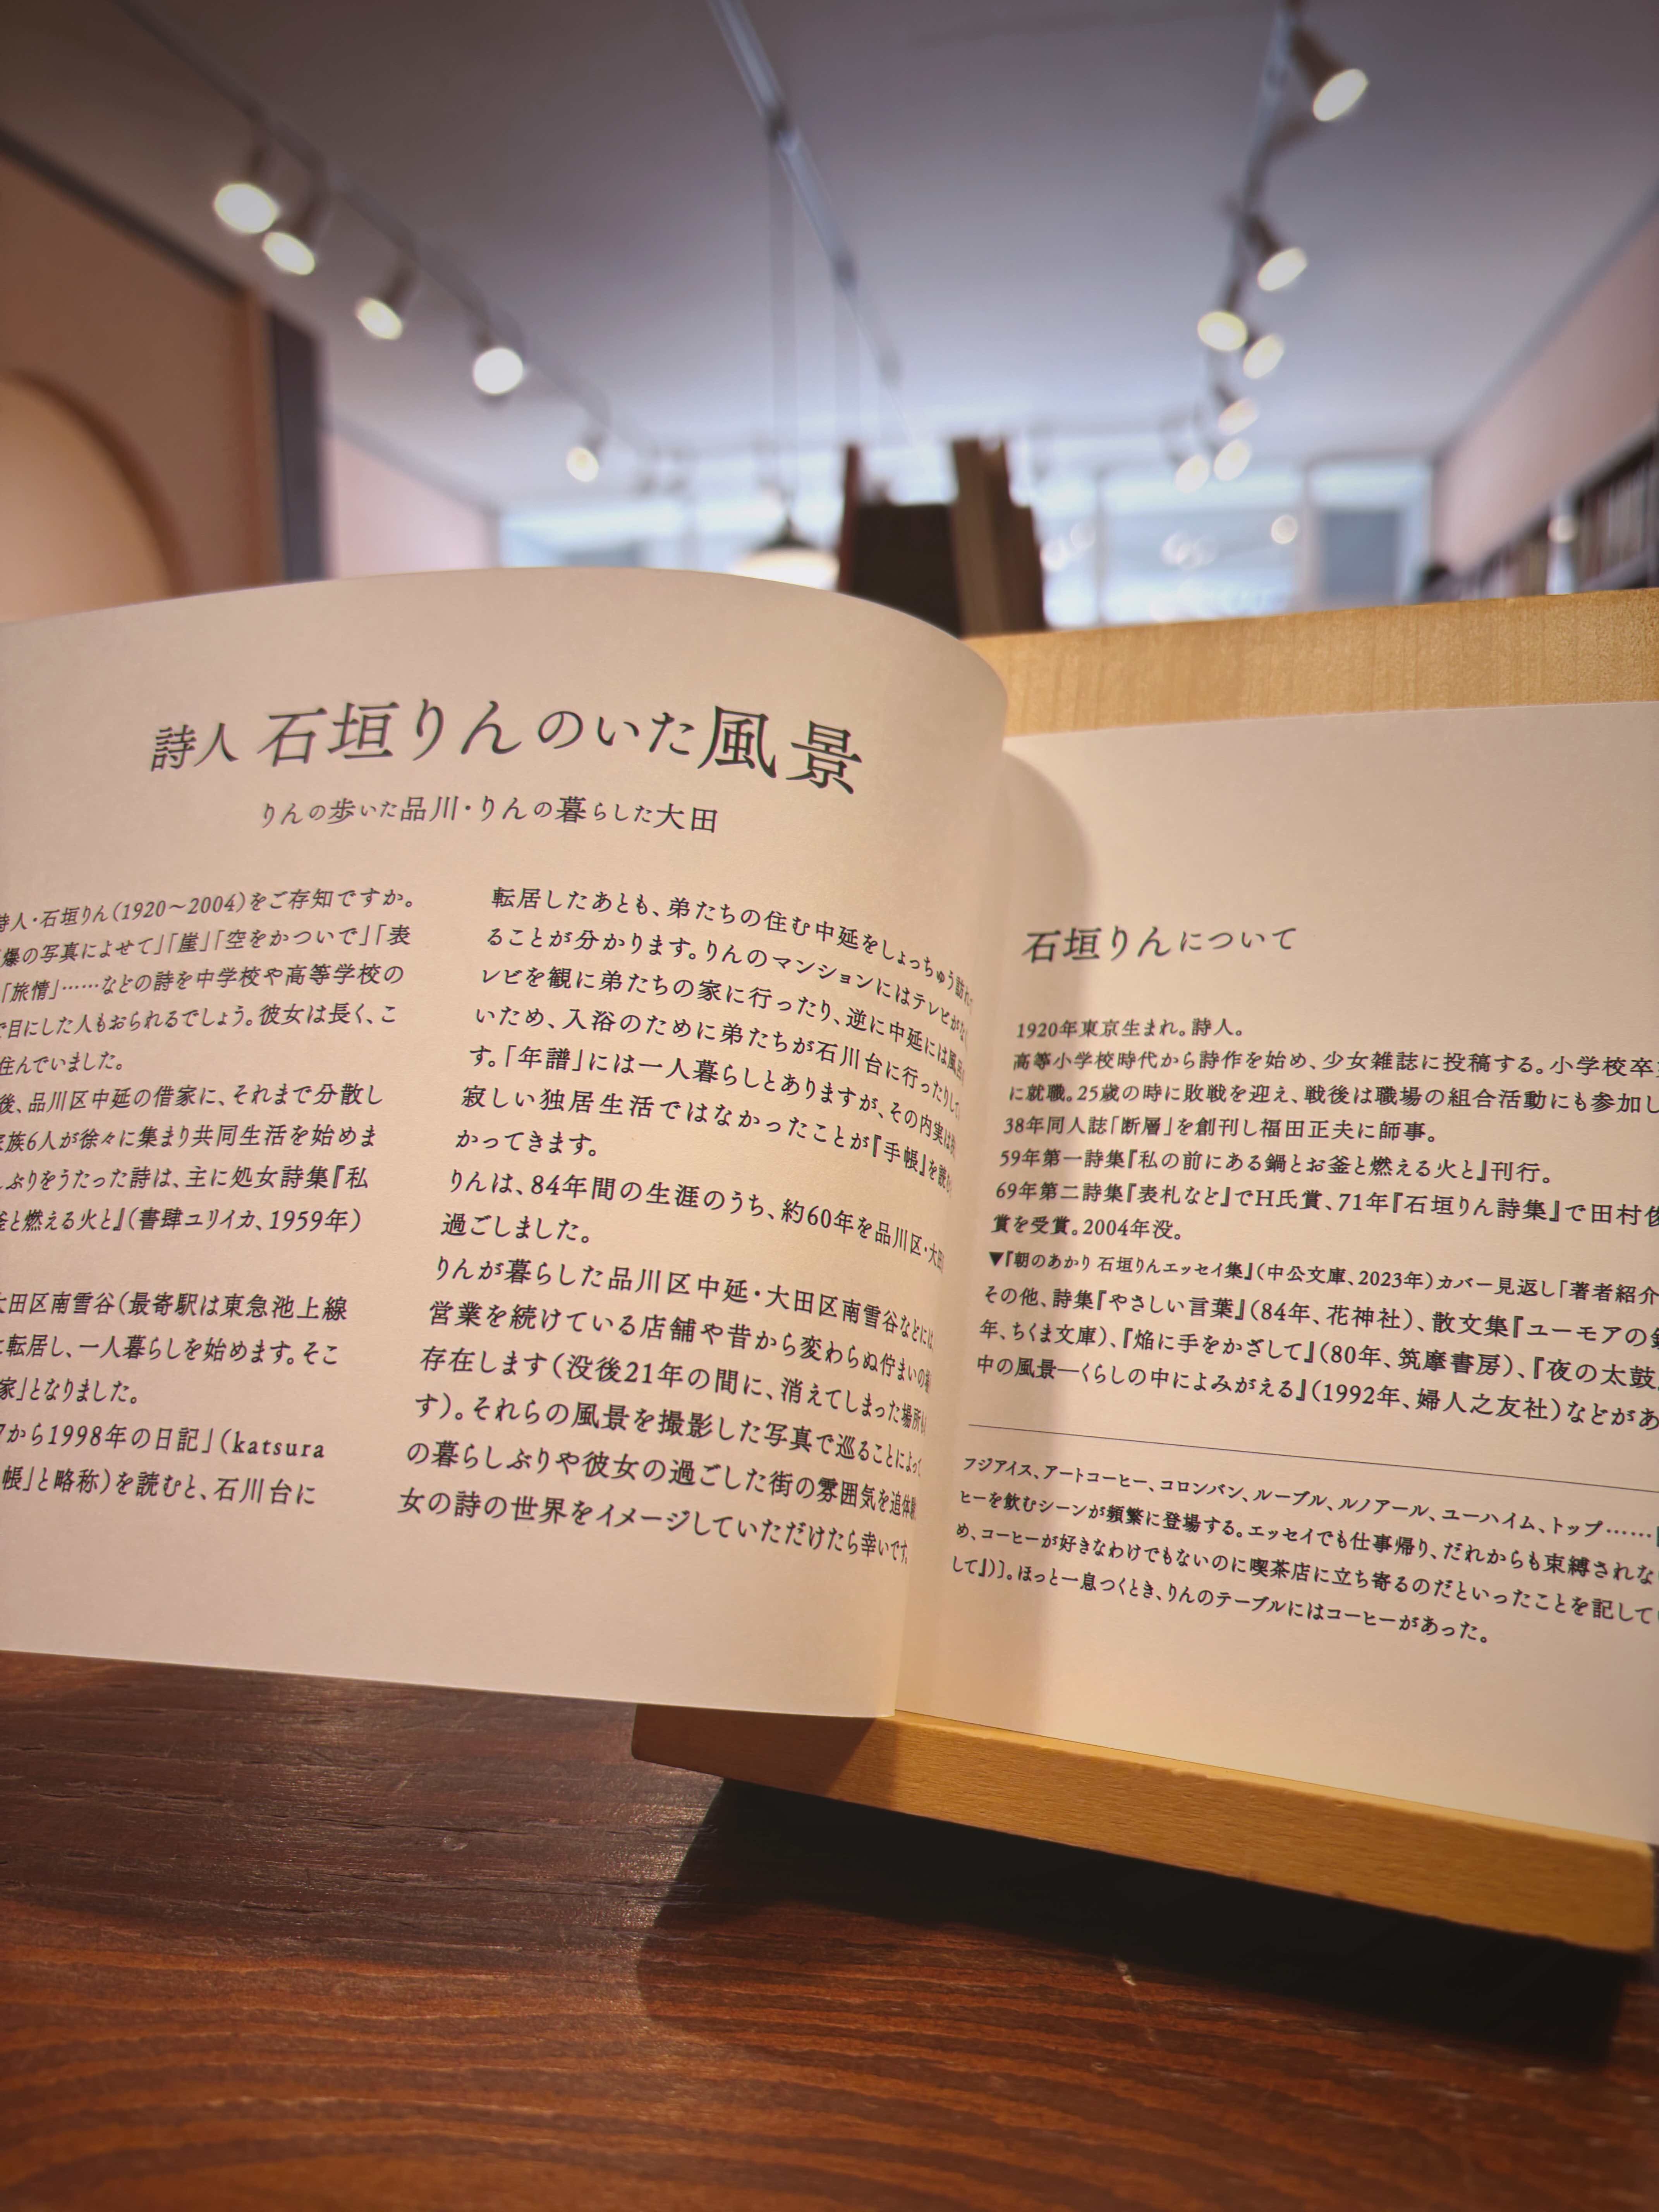 詩人 石垣りんのいた風景
りんの歩いた品川・りんの暮らした大田
詩人・石垣りん(1920〜2004)をご存知ですか。
爆の写真によせて」「崖」「空をかついで」「表
「旅情」……などの詩を中学校や高等学校の
で目にした人もおられるでしょう。彼女は長く、こ
住んでいました。
後、品川区中延の借家に、それまで分散し
家族6人が徐々に集まり共同生活を始めま
しぶりをうたった詩は、主に処女詩集『私
釜と燃える火と』(書肆ユリイカ、1959年)
大田区南雪谷(最寄駅は東急池上線
に転居し、一人暮らしを始めます。そこ
家」となりました。
7から1998年の日記」(katsura
帳」と略称)を読むと、石川台に
転居したあとも、弟たちの住む中延をしょっちゅう訪れ
ることが分かります。りんのマンションにはテレビがな
レビを観に弟たちの家に行ったり、逆に中延には風呂
いため、入浴のために弟たちが石川台に行ったりし
す。「年譜」には一人暮らしとありますが、その内実は
寂しい独居生活ではなかったことが『手帳』を読
かってきます。
りんは、84年間の生涯のうち、約60年を品川区・大田
過ごしました。
りんが暮らした品川区中延・大田区南雪谷などには
営業を続けている店舗や昔から変わらぬ佇まいの
存在します(没後21年の間に、消えてしまった場所も
す)。それらの風景を撮影した写真で巡ることによって
の暮らしぶりや彼女の過ごした街の雰囲気を追体験
女の詩の世界をイメージしていただけたら幸いです。
石垣りんについて
1920年東京生まれ。詩人。
高等小学校時代から詩作を始め、少女雑誌に投稿する。小学校卒
に就職。25歳の時に敗戦を迎え、戦後は職場の組合活動にも参加し
38年同人誌「断層」を創刊し福田正夫に師事。
59年第一詩集『私の前にある鍋とお釜と燃える火と』刊行。
69年第二詩集『表札など』でH氏賞、71年『石垣りん詩集』で田村俊
賞を受賞。2004年没。
▼『朝のあかり 石垣りんエッセイ集』(中公文庫、2023年)カバー見返し「著者紹介
その他、詩集『やさしい言葉』(84年、花神社)、散文集『ユーモアの
年、ちくま文庫)、『焔に手をかざして』(80年、筑摩書房)、『夜の太鼓
中の風景―くらしの中によみがえる』(1992年、婦人之友社)などがあ
フジアイス、アートコーヒー、コロンバン、ルーブル、ルノアール、ユーハイム、トップ……
ヒーを飲むシーンが頻繁に登場する。エッセイでも仕事帰り、だれからも束縛されな
め、コーヒーが好きなわけでもないのに喫茶店に立ち寄るのだといったことを記して
して』)]。ほっと一息つくとき、りんのテーブルにはコーヒーがあった。